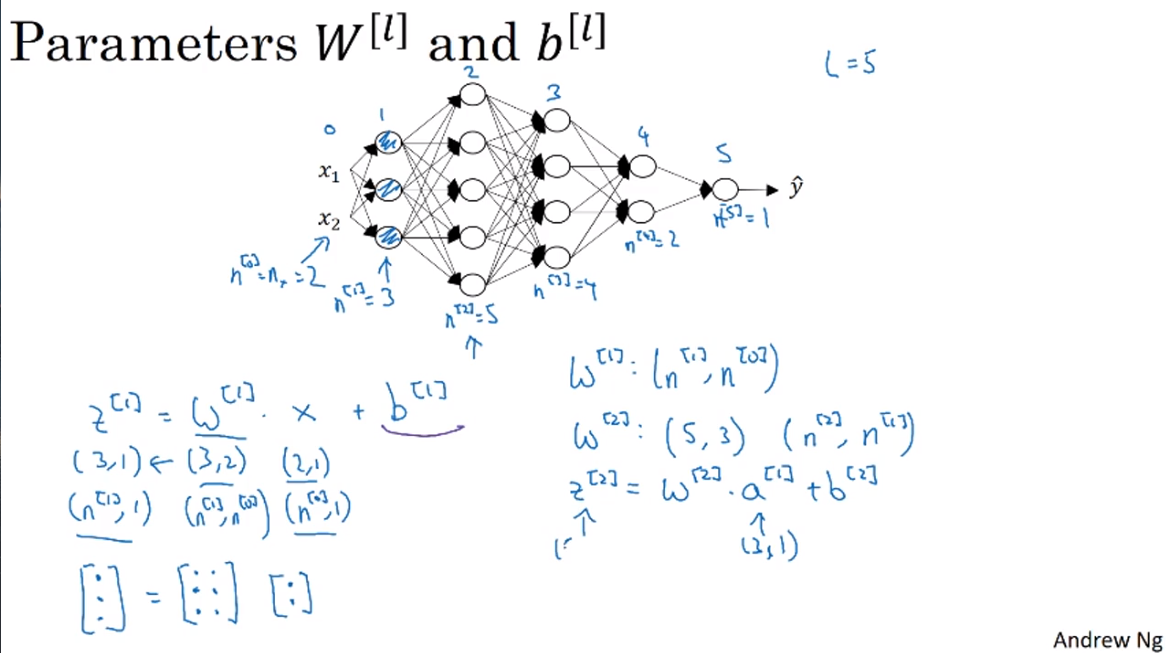 Parameters W^[l] and b^[l]
L = 5
0 1 2 3 4 5
x₁
x₂
ŷ
n^[0] = nₓ = 2
n^[1] = 3
n^[2] = 5
n^[3] = 4
n^[4] = 2
n^[5] = 1
z^[1] = W^[1] · x + b^[1]
(3,1) ← (3,2) (2,1)
(n^[1], 1) (n^[1], n^[0]) (n^[0], 1)
[⋮] = [⋮ ⋮] [:]
W^[1] : (n^[1], n^[0])
W^[2] : (5, 3) (n^[2], n^[1])
z^[2] = W^[2] · a^[1] + b^[2]
↑ ↑
(5 (3,1)
Andrew Ng